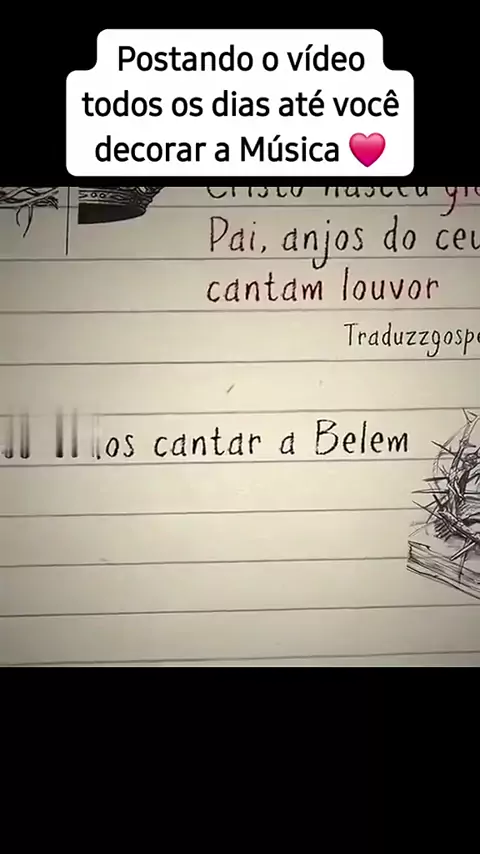 Postando o vídeo
todos os dias até você
decorar a Música
Cristo nasceu
Pai, anjos do ceu
cantam louvor
Traduzzgospe
os cantar a Belem